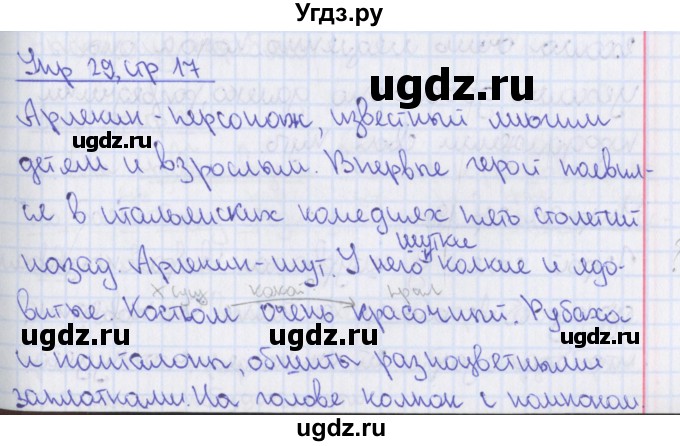 Угдз.ру
Упр 29, стр 17
ugdz.ru
Арлекин - персонаж, известный многим
ugdz.ru
детям и взрослым. Впервые герой появил-
ся в итальянских комедиях пять столетий
шутки
назад. Арлекин-шут. У него колкие и ядо-
Х сущ какой прил
витые. Костюм очень красочный. Рубаха
ugdz.ru ugdz.ru
и панталоны, обшиты разноцветными
заплатками. На голове колпак с помпоном